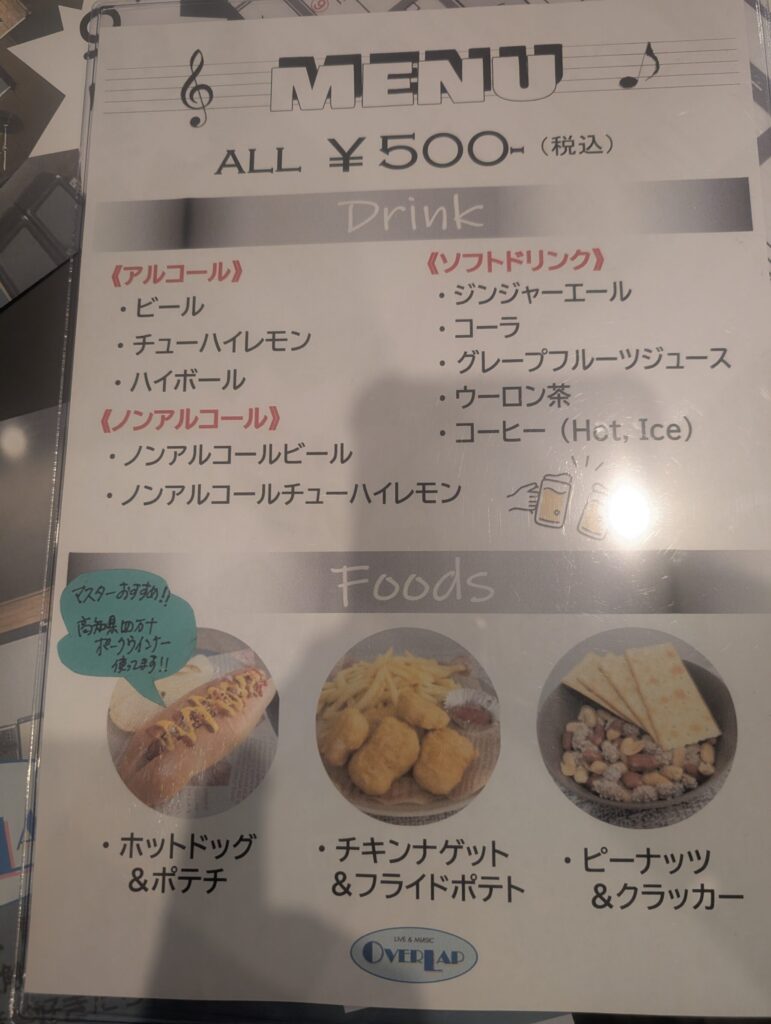 MENU
ALL ¥500-（税込）
Drink
《アルコール》
・ビール
・チューハイレモン
・ハイボール
《ノンアルコール》
・ノンアルコールビール
・ノンアルコールチューハイレモン
《ソフトドリンク》
・ジンジャーエール
・コーラ
・グレープフルーツジュース
・ウーロン茶
・コーヒー（Hot, Ice）
Foods
マスターおすすめ!!
高知県四万十
ポークウインナー
使ってます!!
・ホットドッグ
&ポテチ
・チキンナゲット
&フライドポテト
・ピーナッツ
&クラッカー
LIVE & MUSIC
OVERLAP